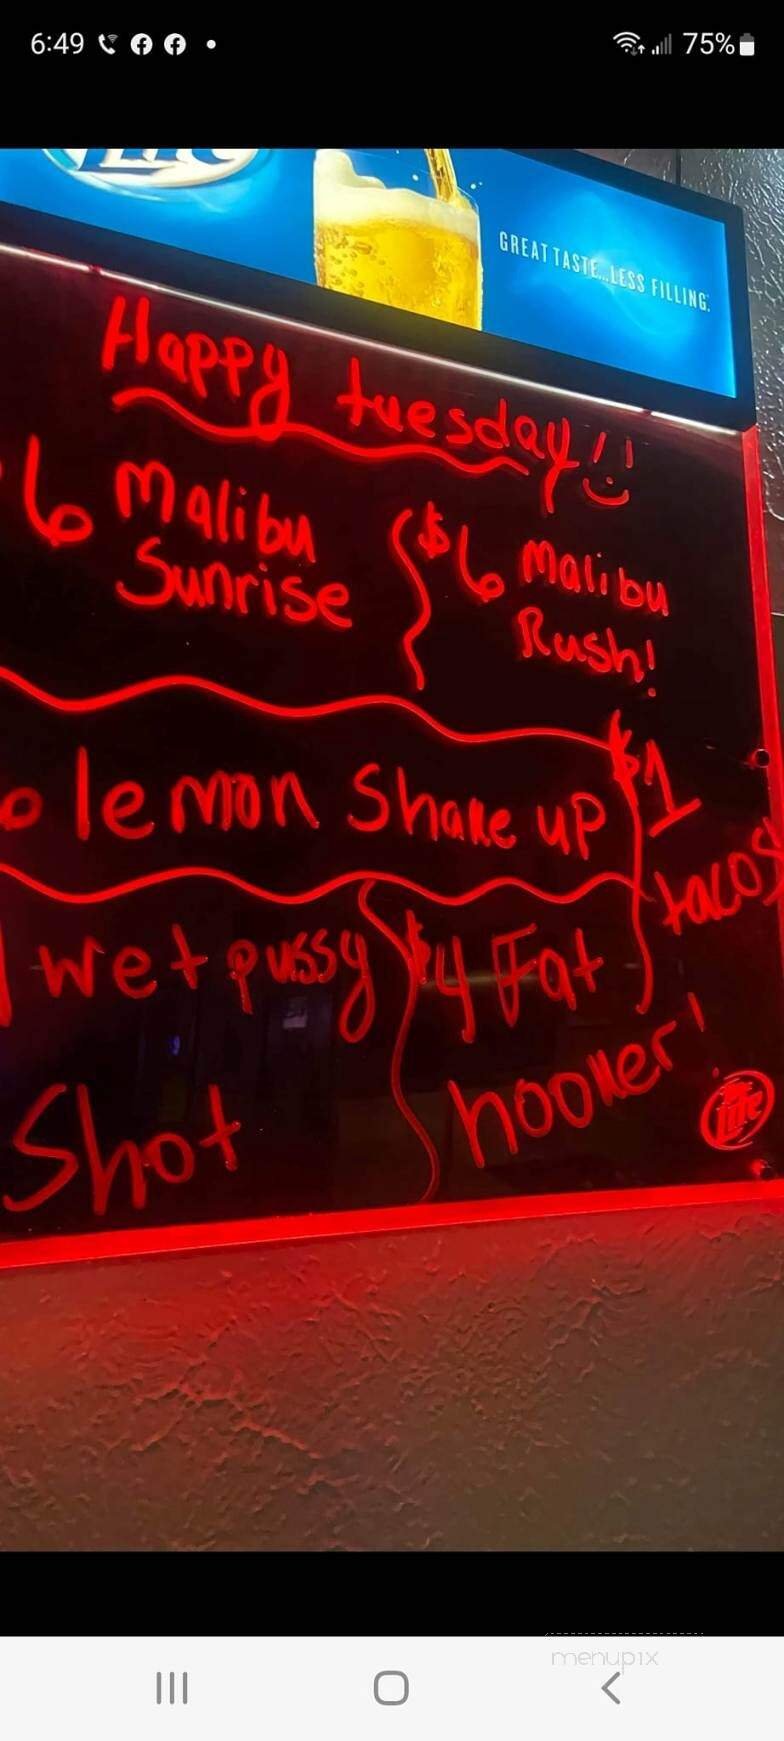 6:49
75%
Lite
GREAT TASTE...LESS FILLING.
Happy tuesday!!
6 Malibu
Sunrise
$6 Malibu
Rush!
lemon Shake up
$1
tacos
wet pussy
Shot
$4 Fat
hooker!
Lite
menupix